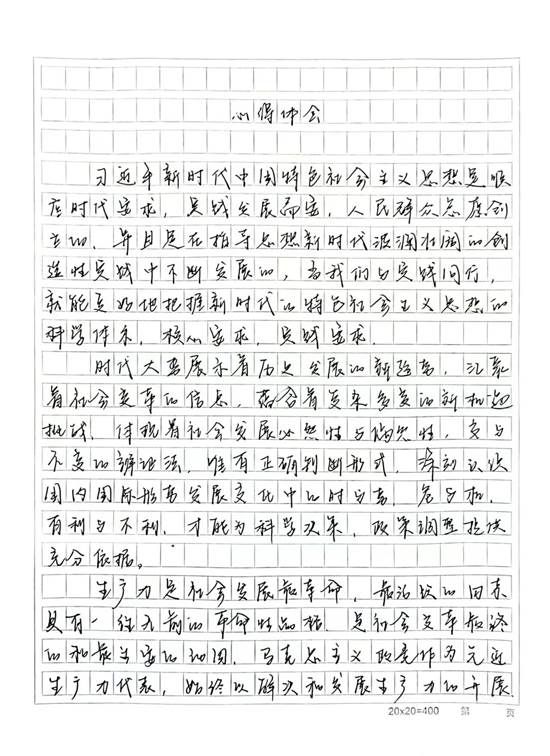 心得体会
习近平新时代中国特色社会主义思想是顺
应时代要求，实践发展而来，人民群众总原创
立的，并且是在指导思想新时代波澜壮阔的创
造性实践中不断发展的，当我们与实践同行，
就能更好地把握新时代的特色社会主义思想的
科学体系，核心要求，实践要求。
时代大势展示着历史发展的新趋势，汇聚
着社会变革的信息，蕴含着复杂多变的新机遇
挑战，体现着社会发展必然性与偶然性，变与
不变的辩证法，唯有正确判断形式，深刻认识
国内国际形势发展变化中的时与势，危与机，
有利与不利，才能为科学决策，政策调整提供
充分依据。
生产力是社会发展最革命，最活跃的因素
具有一往无前的革命性品格，是社会变革最终
的和最主要的动因，马克思主义政党作为先进
生产力代表，始终以解决和发展生产力的开展
20×20=400 第 页